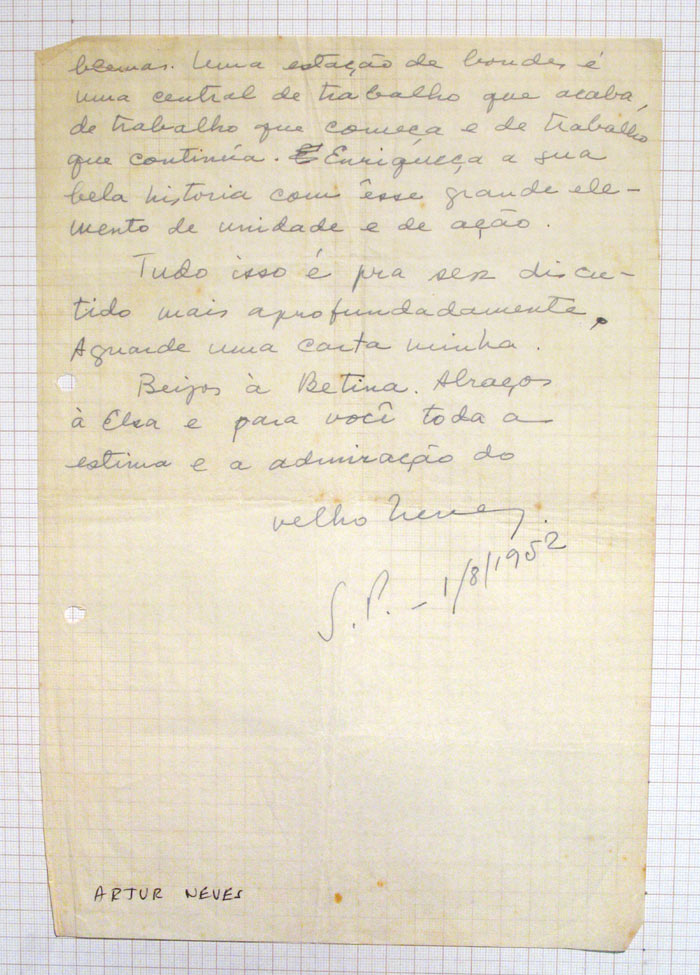 blemas. Uma estação de bondes é
uma central de trabalho que acaba,
de trabalho que começa e de trabalho
que continúa. Enriqueça a sua
bela historia com êsse grande ele-
mento de unidade e de ação.
Tudo isso é pra ser discu-
tido mais aprofundadamente.
Aguarde uma carta minha.
Beijos à Betina. Abraços
à Elsa e para você toda a
estima e a admiração do
velho Neves.
S.P. - 1/8/1952
ARTUR NEVES